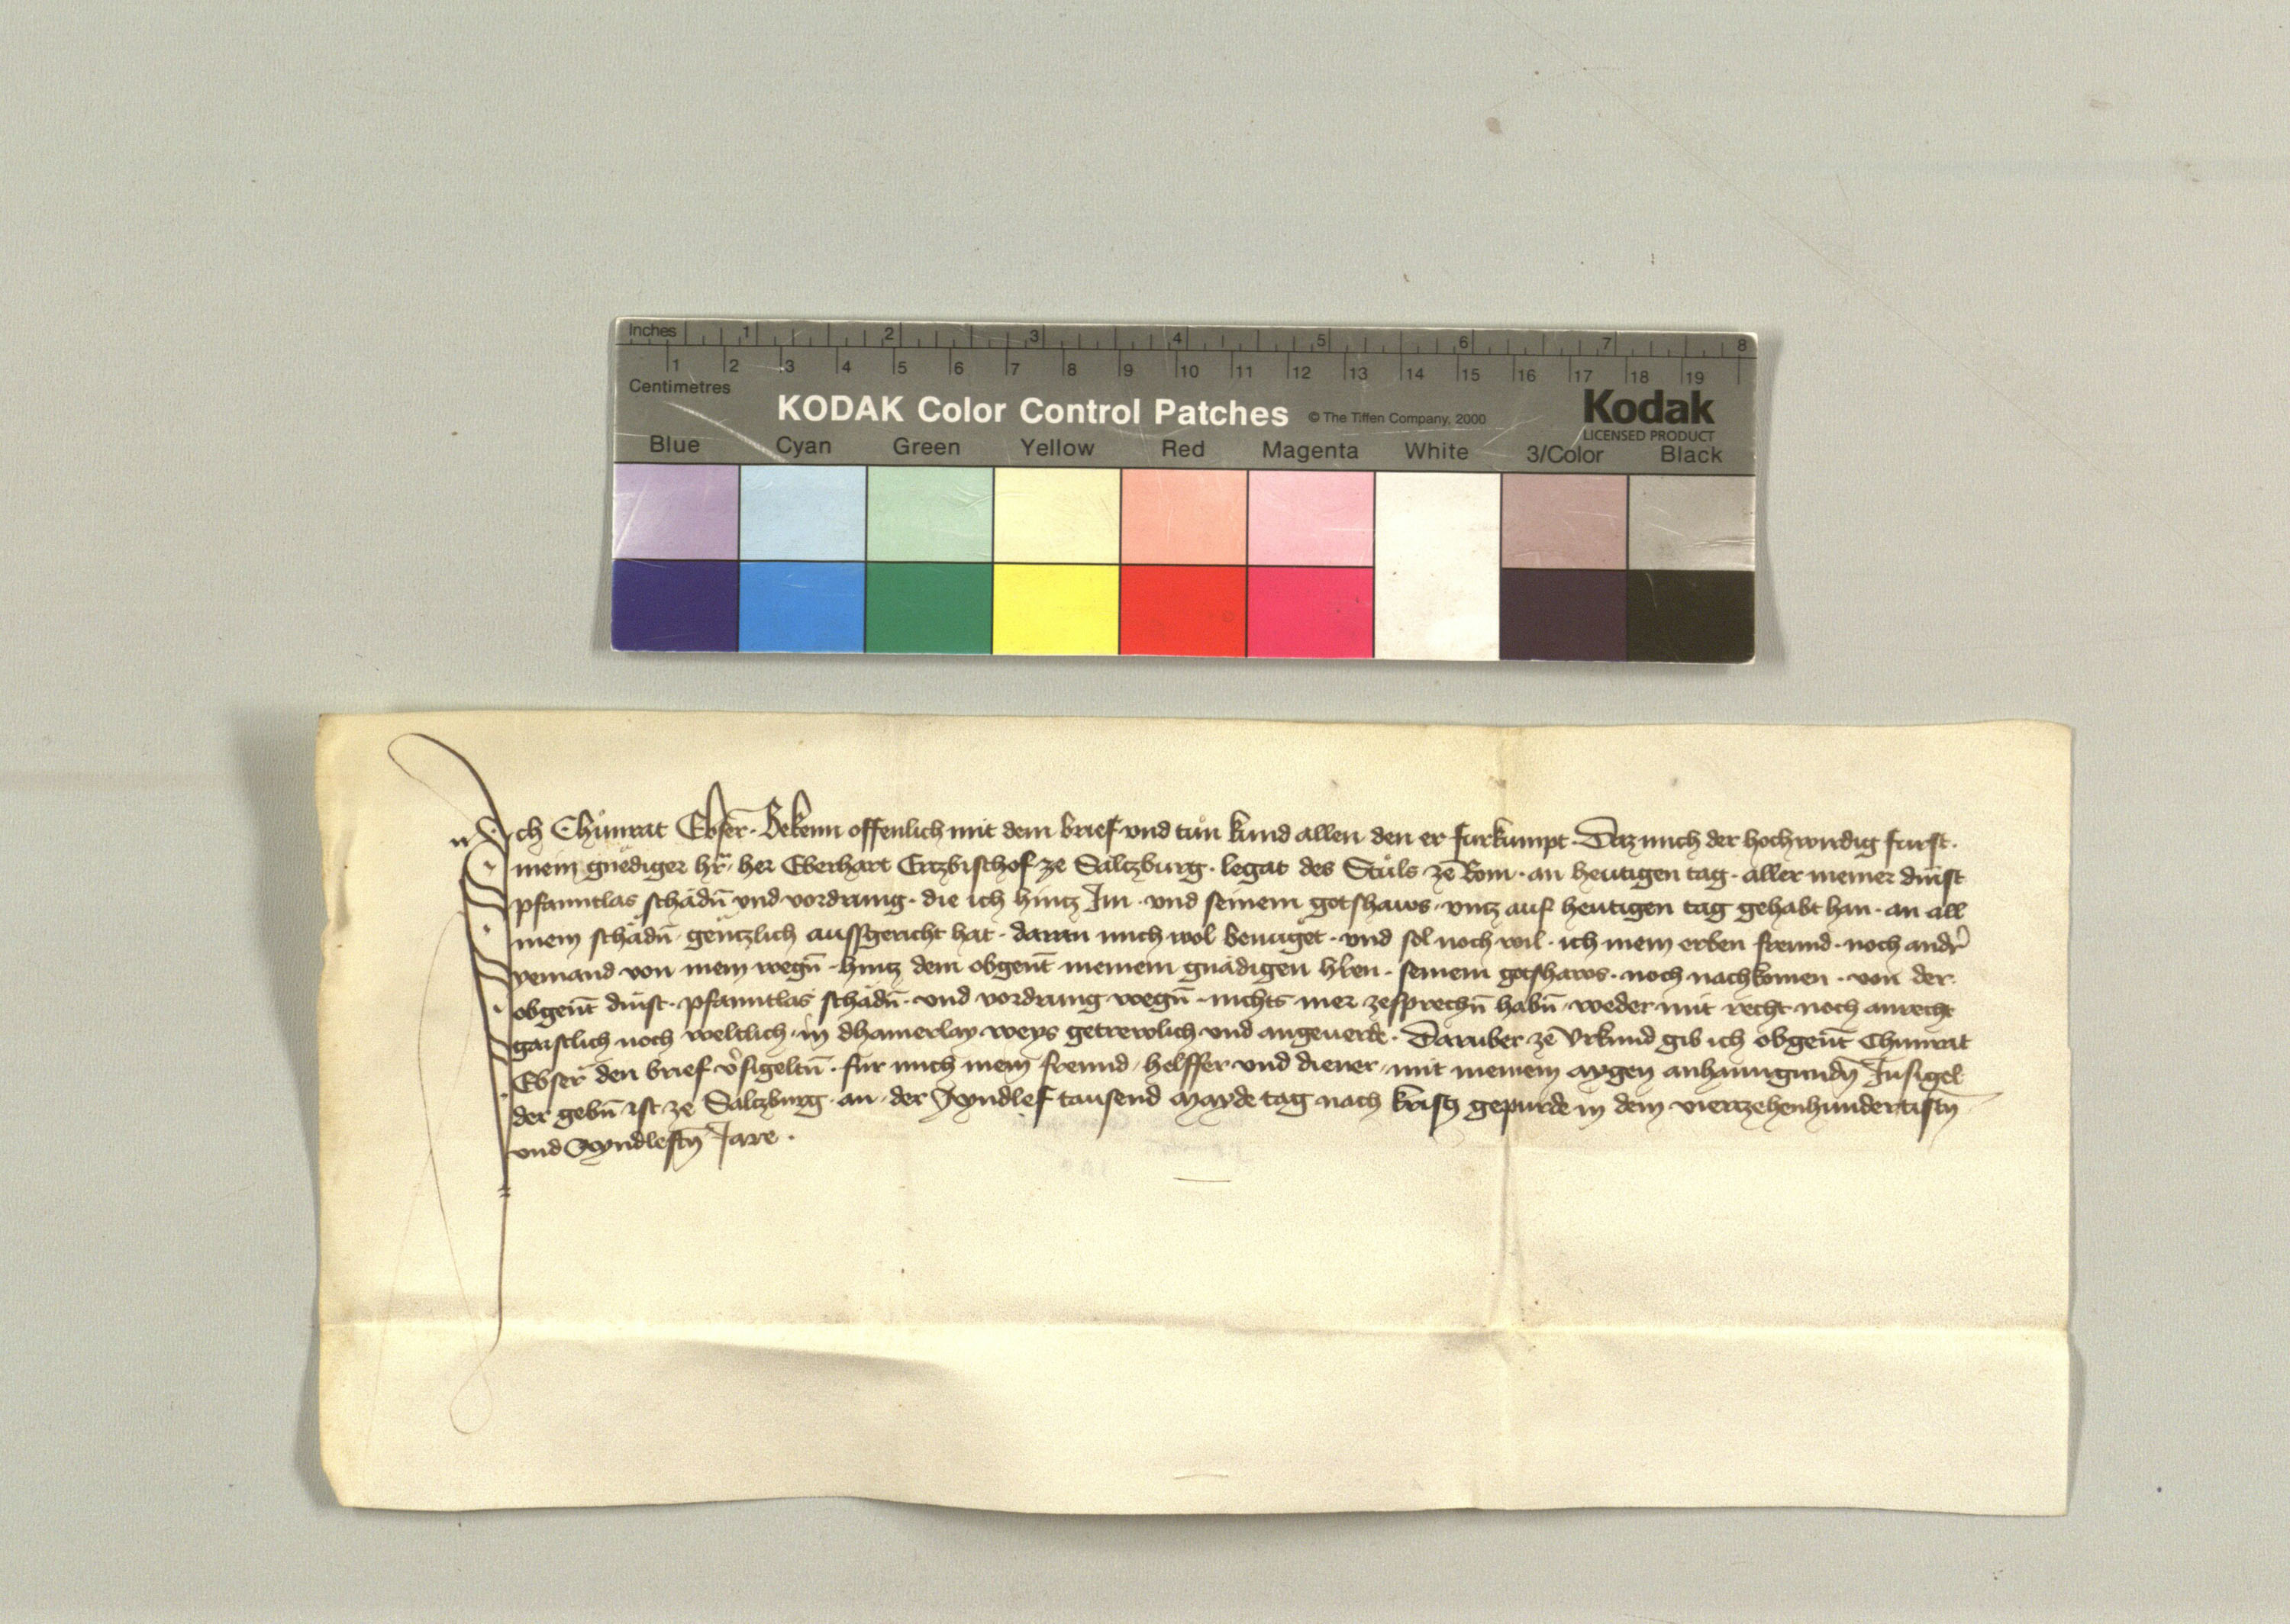 Inches 1 2 3 4 5 6 7 8
1 2 3 4 5 6 7 8 9 10 11 12 13 14 15 16 17 18 19
Centimetres
KODAK Color Control Patches © The Tiffen Company, 2000 Kodak
LICENSED PRODUCT
Blue Cyan Green Yellow Red Magenta White 3/Color Black
Ich Chůnrat Ebser̄ · Bekenn offenlich mit dem brief vnd tůn kund allen den er furkumpt · Daz mich der hochwirdig furst ·
mein gnediger hr̄ · her Eberhart Ertzbischof ze Saltzburg · legat des Stůls ze Rom · an heutigen tag · aller meiner dinst
pfanntlas schadn̄ vnd vordrung · die ich hintz Im · vnd seinem gotshaws · vntz auf heutigen tag gehabt han · an all
mein schadn̄ · gentzlich aussgericht hat · daran mich wol benuget · vnd sol noch wil · ich mein erben frewnd · noch andr̄
yemand von mein wegn̄ · hintz dem obgen̄t meinem gnadigen hr̄en · seinem gotshaws · noch nachkomen · von der
obgen̄t dinst · pfanntlas schadn̄ · vnd vordrung wegn̄ · nichts mer zesprechn̄ habn̄ · weder mit recht noch anrecht
gaistlich noch weltlich · in dhainerlay weys getrewlich vnd angeuerde · Daruber ze Vrkund gib ich obgen̄t Chunrat
Ebser den brief v̄sigeltn̄ · fur mich mein frewnd · helffer vnd diener · mit meinem aygen anhanngundn̄ Insigel
der gebn̄ ist ze Saltzburg · an · der Ayndlef tausend Mayde tag nach kristz gepurde in dem vierzehenhundertistn̄
vnd Ayndleftn̄ Jare ·